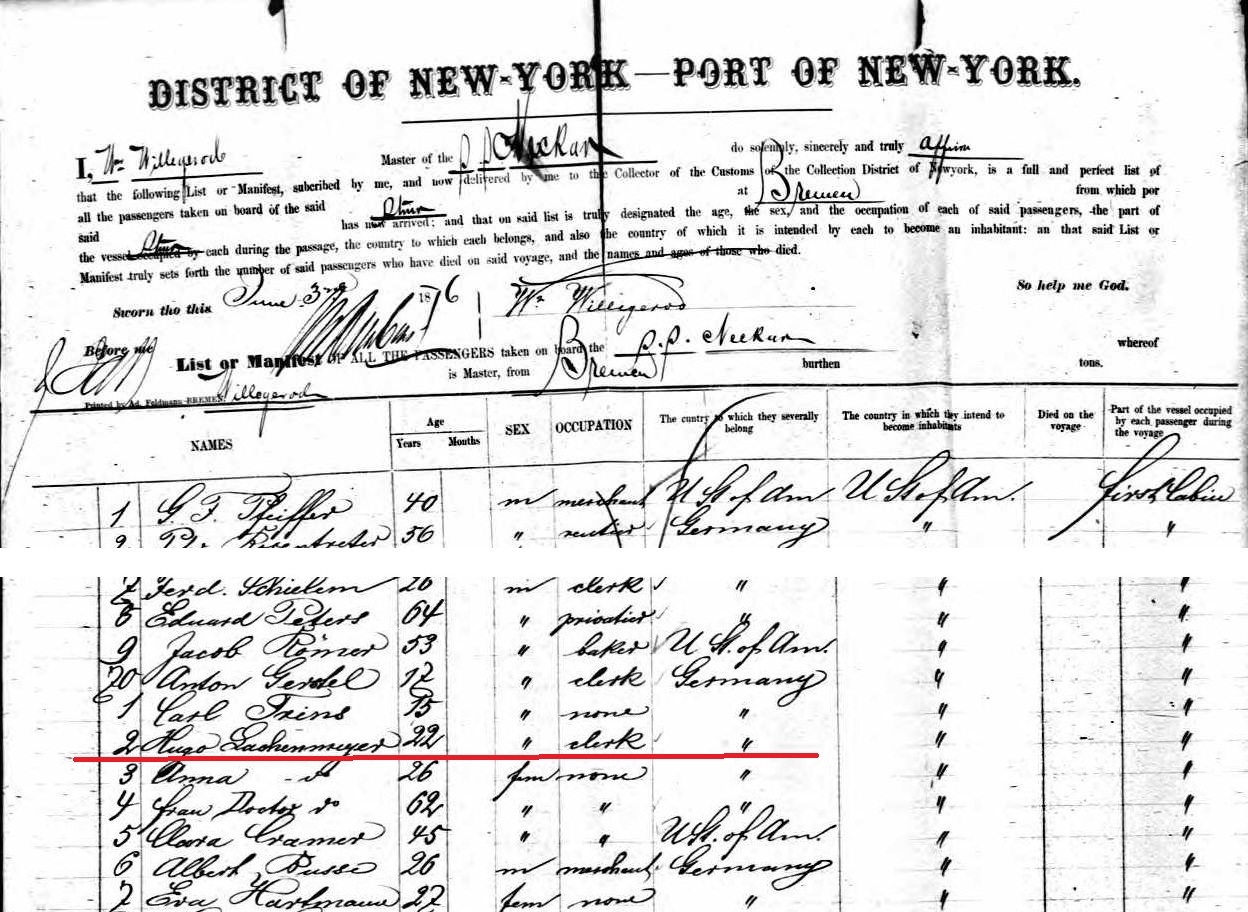 DISTRICT OF NEW-YORK—PORT OF NEW-YORK.
I, Wm Willegerod Master of the S. S. Neckar do solemnly, sincerely and truly affirm
that the following List or Manifest, subcribed by me, and now delivered by me to the Collector of the Customs of the Collection District of Newyork, is a full and perfect list of
all the passengers taken on board of the said at Bremen from which por
said has now arrived; and that on said list is truly designated the age, the sex, and the occupation of each of said passengers, the part of
the vessel occupied by each during the passage, the country to which each belongs, and also the country of which it is intended by each to become an inhabitant: an that said List or
Manifest truly sets forth the number of said passengers who have died on said voyage, and the names and ages of those who died.
Sworn tho this June 3rd 1876 Wm Willigerod So help me God.
Before me
List or Manifest OF ALL THE PASSENGERS taken on board the S. S. Neckar whereof
Willegerod is Master, from Bremen burthen tons.
Printed by Ad. Feldmann BREMEN
NAMES Age Years Months SEX OCCUPATION The cuntry to which they severally belong The country in which thy intend to become inhabitants Died on the voyage Part of the vessel occupied by each passenger during the voyage
1 G. F. Pfeiffer 40 m merchant U St of Am U St of Am. first Cabin
2 56 " rentier Germany " "
7 Ferd. 26 m clerk " " "
8 Eduard Peters 64 " privatier " " "
9 Jacob Römer 53 " baker U St. of Am. " "
20 Anton Gerstel 17 " clerk Germany " "
1 Carl Trins 15 " none " " "
2 Hugo Lachenmeyer 22 " clerk " " "
3 Anna do 26 fem none " " "
4 frau Doctor do 62 " " " " "
5 Clara Cramer 45 " " U St. of Am. " "
6 Albert Busse 26 m merchant Germany " "
7 Eva Hartmann 27 fem none " " "